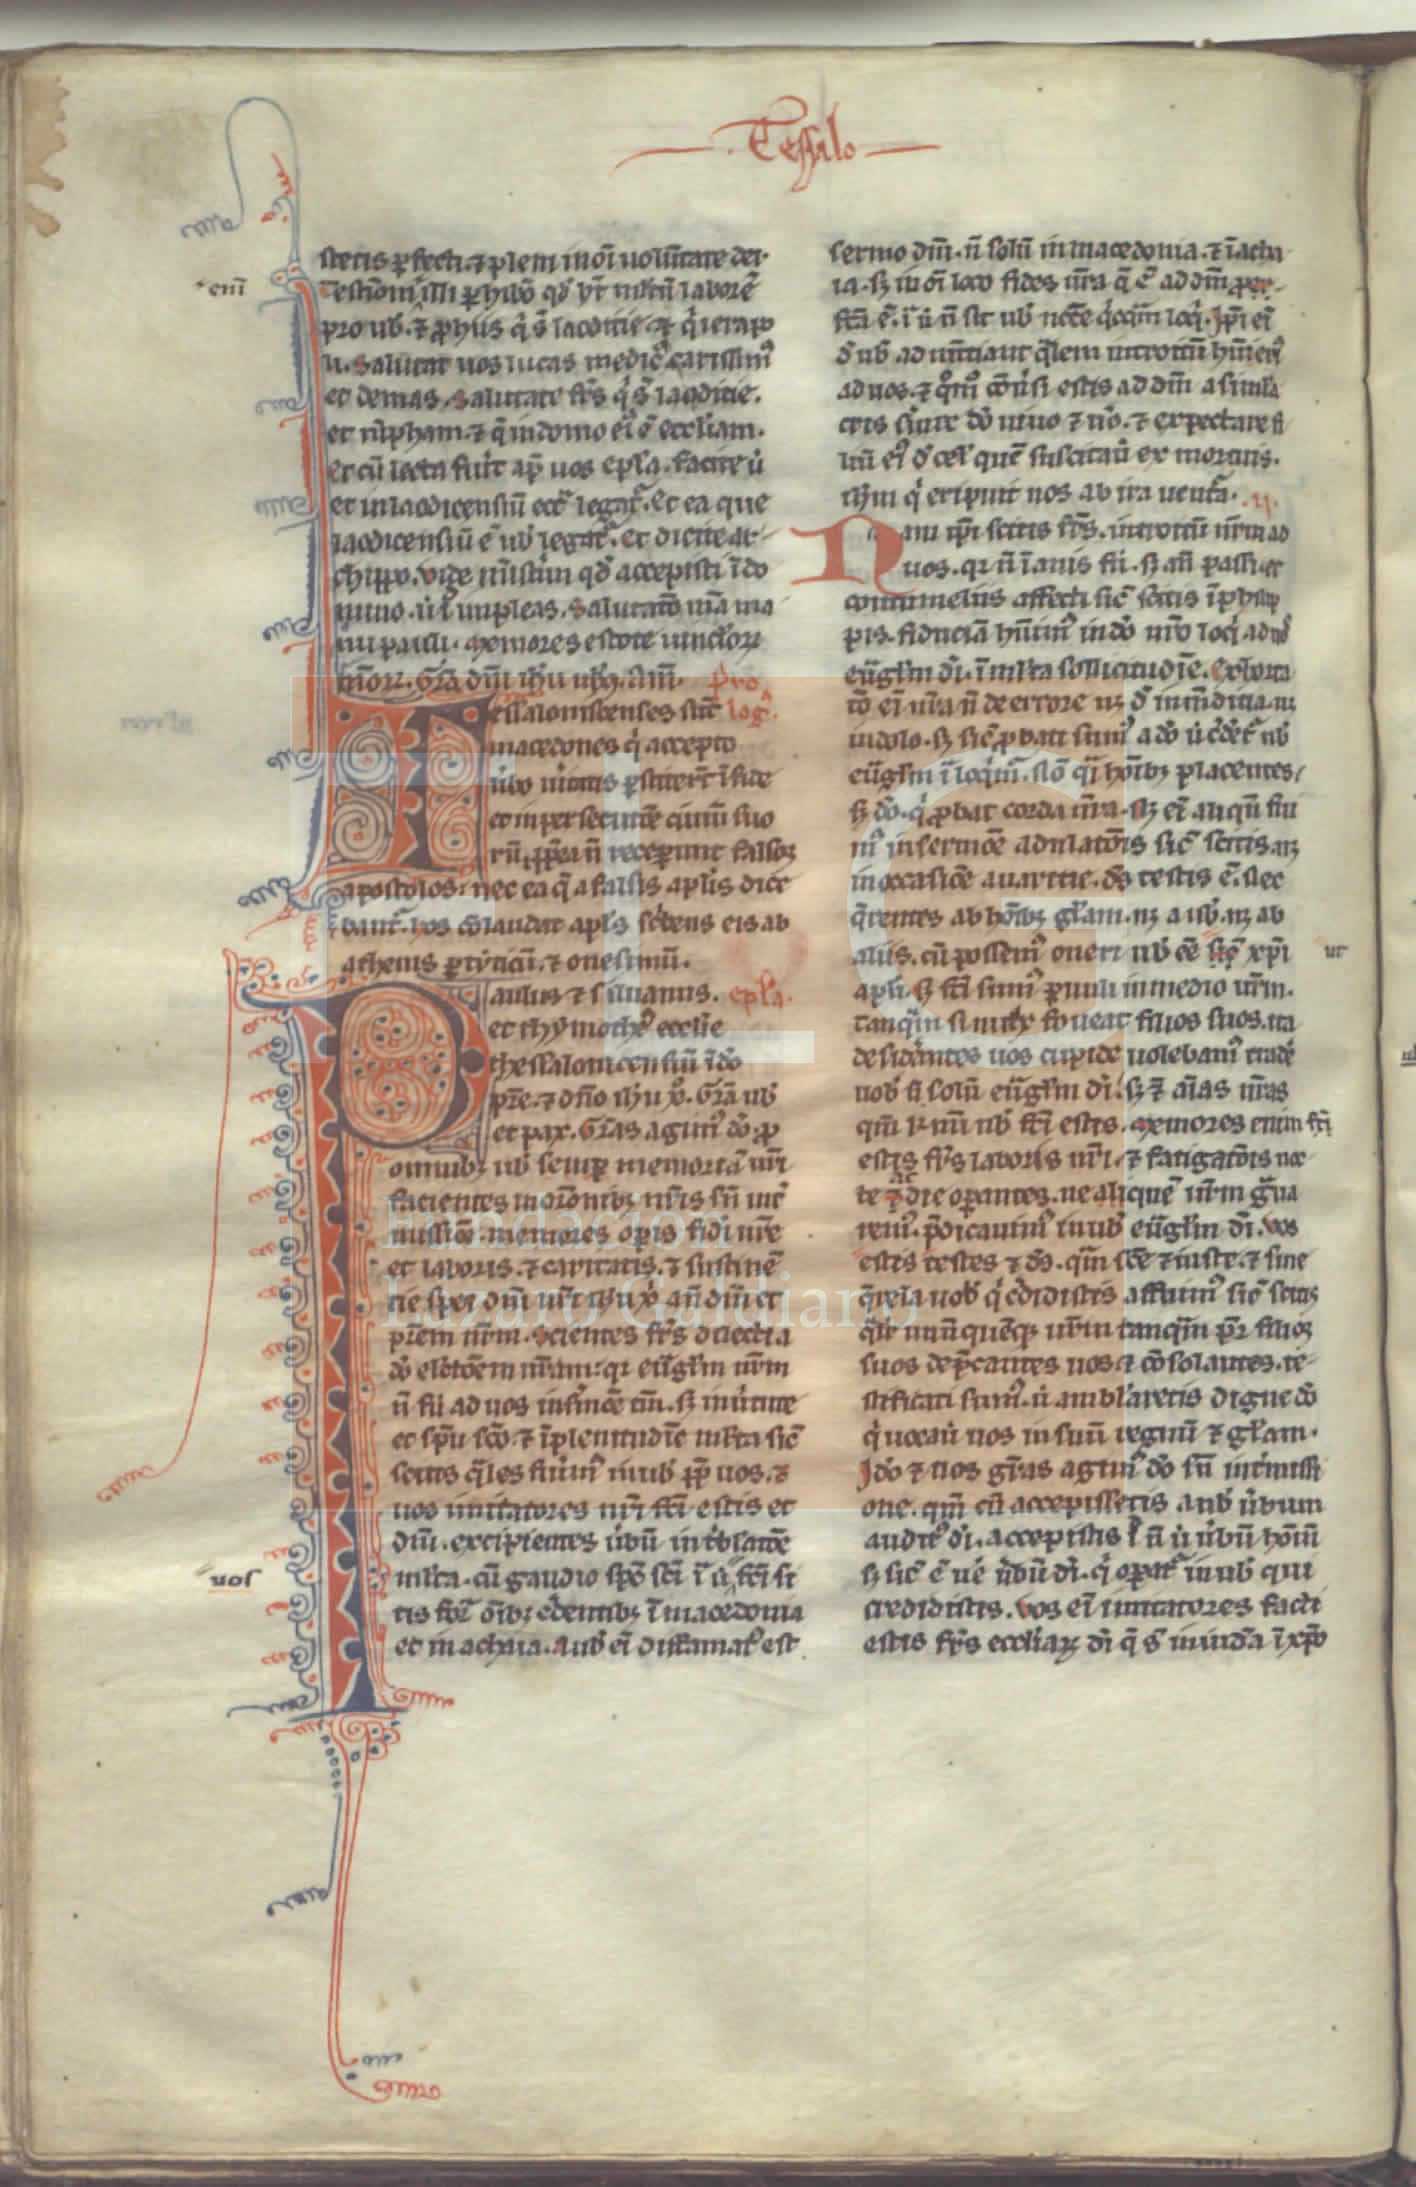 Tessalo
stetis ꝑfecti ⁊ pleni in oī uolūtate dei.
eniꝫ
pro uob̄ ⁊ ꝓ hiis q̇ s̄t laodicie ⁊ q̇ ierapo
li. Salutat uos lucas medic᷒ carissim᷒
et demas. Salutate fr̄s q̇ s̄t laodicie.
et nīpham. ⁊ q̄ in domo ei᷒ ē eccl̄iam.
Et cū lecta fuīt ap̄ uos epl̄a. facite ut̄
et in laodicensiū eccl̄ legat᷑. Et ea que
laodicensiū ē uob̄ legat᷑. Et dicite ar
chippo. vide mīst̄im qd̄ accepisti ī do
mino. ut̄ il̄ impleas. Salutatō mea ma
nu pauli. Memores estote uinclōꝝ
meōꝝ. Gr̄a dn̄i ih̄u uob̄. am̄. Pro
Tessalonicenses sūt log᷒.
macedones q̇ accepto
ūbo ūitatis ꝑstiterūt ī fide
apostolos. nec ea q̄ a falsis apl̄is dice
bant᷑. hos cōlaudat apl̄s sc̄bens eis ab
athenis ꝑ tyticū. ⁊ onesimū.
Paulus ⁊ siluanus. epl̄a.
et thymothe᷒ eccl̄ie
thessalonicensiū ī dō
pr̄e. ⁊ dn̄o ih̄u xp̄o. Gr̄a uob̄
et pax. Gr̄as agim᷒ dō ꝓ
omnibꝫ uob̄ semp̄ memoriā ur̄i
facientes in orōnibꝫ nr̄is sn̄ int̄
missiōe. memores oꝑis fidi ur̄e
et laboris. ⁊ caritatis. ⁊ sustinē
tie spei dn̄i nr̄i ih̄u xp̄i an̄ dm̄ et
pr̄em nr̄m. Scientes fr̄s dilecti a
dō electōem ur̄am. qr eūgl̄m nr̄m
nō fū ad uos in s̄mōe tm̄. sꝫ in ūtute
et sp̄u sc̄o. ⁊ ī plenitudīe mlt̄a sic̄
scitis q̄les fuim᷒ in uob̄ ꝓp̄ uos. ⁊
uos imitatores nr̄i fc̄i estis et
dn̄i. excipientes ūbū in tb̄latōe
uos
mlt̄a. cū gaudio sp̄s sc̄i ī ut̄ fc̄i si
tis for̄ oīb̄ c̄dentibꝫ ī macedonia
et in achaia. A uob̄ ei᷒ diffamat᷒ est
sermo dn̄i. n̄ solū in macedonia. ⁊ ī acha
ia. sꝫ in oī loco fides ur̄a q̄ ē ad dm̄ ꝓfe
cta ē. ī ut̄ n̄ sit nob̄ nc̄cē q̇cq̄m loq̄. Ip̄i eī
d̄ nob̄ adnūtiant q̄lem introitū hūim᷒
ad uos. ⁊ q̊m̄ cōūsi estis ad dm̄ a simula
cris s̄uire dō uiuo ⁊ ūo. ⁊ expectare fi
liū ei᷒ d̄ cel᷒ quē suscitauit̄ ex mortuis.
ih̄m q̇ eripuit nos ab ira uentur̄a. .ij.
Nam ip̄i scitis fr̄s. introitū nr̄m ad
uos. qr n̄ inanis fū. sꝫ an̄ passi et
contumeliis affecti sic̄ scitis ī phylip
pis. fiduciā hūim᷒ in dō nr̄o loq̄ ad uos
eūgl̄m dī. ī mlt̄a sollicitudīe. Exhorta
tō eī nr̄a n̄ de errore nꝫ d̄ inmūditia nꝫ
in dolo. sꝫ sic̄ ꝓbati sum᷒ a dō ut̄ c̄der̄t nob̄
eūgl̄m ī loq̄m᷒. nō q̄i hoībꝫ placentes.
sꝫ dō. q̇ ꝓbat corda nr̄a. nꝫ eī aliqn̄ fui
m᷒ in sermōe adulatōis sic̄ scitis. nꝫ
in occasiōe auaritie. ds̄ testis ē. nec
q̄rentes ab hoībꝫ gl̄am. nꝫ a uob̄. nꝫ ab
aliis. cū possem᷒ oneri uob̄ eē sic̄ xp̄i
ut
apl̄i. sꝫ fc̄i sum᷒ ꝑuuli in medio ur̄m.
tanq̄m si nutrix foueat filios suos. ita
desid̄antes uos cupide uolebam᷒ trad̄e
uob̄ n̄ solū eūgl̄m dī. sꝫ ⁊ aīas nr̄as
qm̄ kmī nob̄ fc̄i estis. Memores enim fc̄i
estis fr̄s laboris nr̄i. ⁊ fatigatōis noc
te ac die oꝑantes. ne aliquē ur̄m gr̄ua
rem᷒. p̄dicauim᷒ in uob̄ eūgl̄m dī. Vos
estis testes ⁊ ds̄. qm̄ sc̄e ⁊ iuste. ⁊ sine
q̄rela uob̄ q̇ c̄didistis affuim᷒ sic̄ scitis
q̄lr̄ unū quēqꝫ ur̄m tanq̄m pr̄ filios
suos dep̄cantes uos ⁊ cōsolantes. te
stificati sum᷒. ut̄ ambl̄aretis digne dō
q̇ uocauit̄ uos in suū regnū ⁊ gl̄am.
Ido ⁊ nos gr̄as agim᷒ dō sn̄ int̄missi
one. qm̄ cū accepissetis a nob̄ ūbum
audit᷒ dī. accepistis il̄ n̄ ut̄ ūbū hoīū
sꝫ sic̄ ē ue ūbū dī. q̇ oꝑat᷑ in uob̄ qui
credidistis. Vos eī imitatores facti
estis fr̄s eccl̄iaꝝ dī q̄ s̄ in iudea ī xp̄o